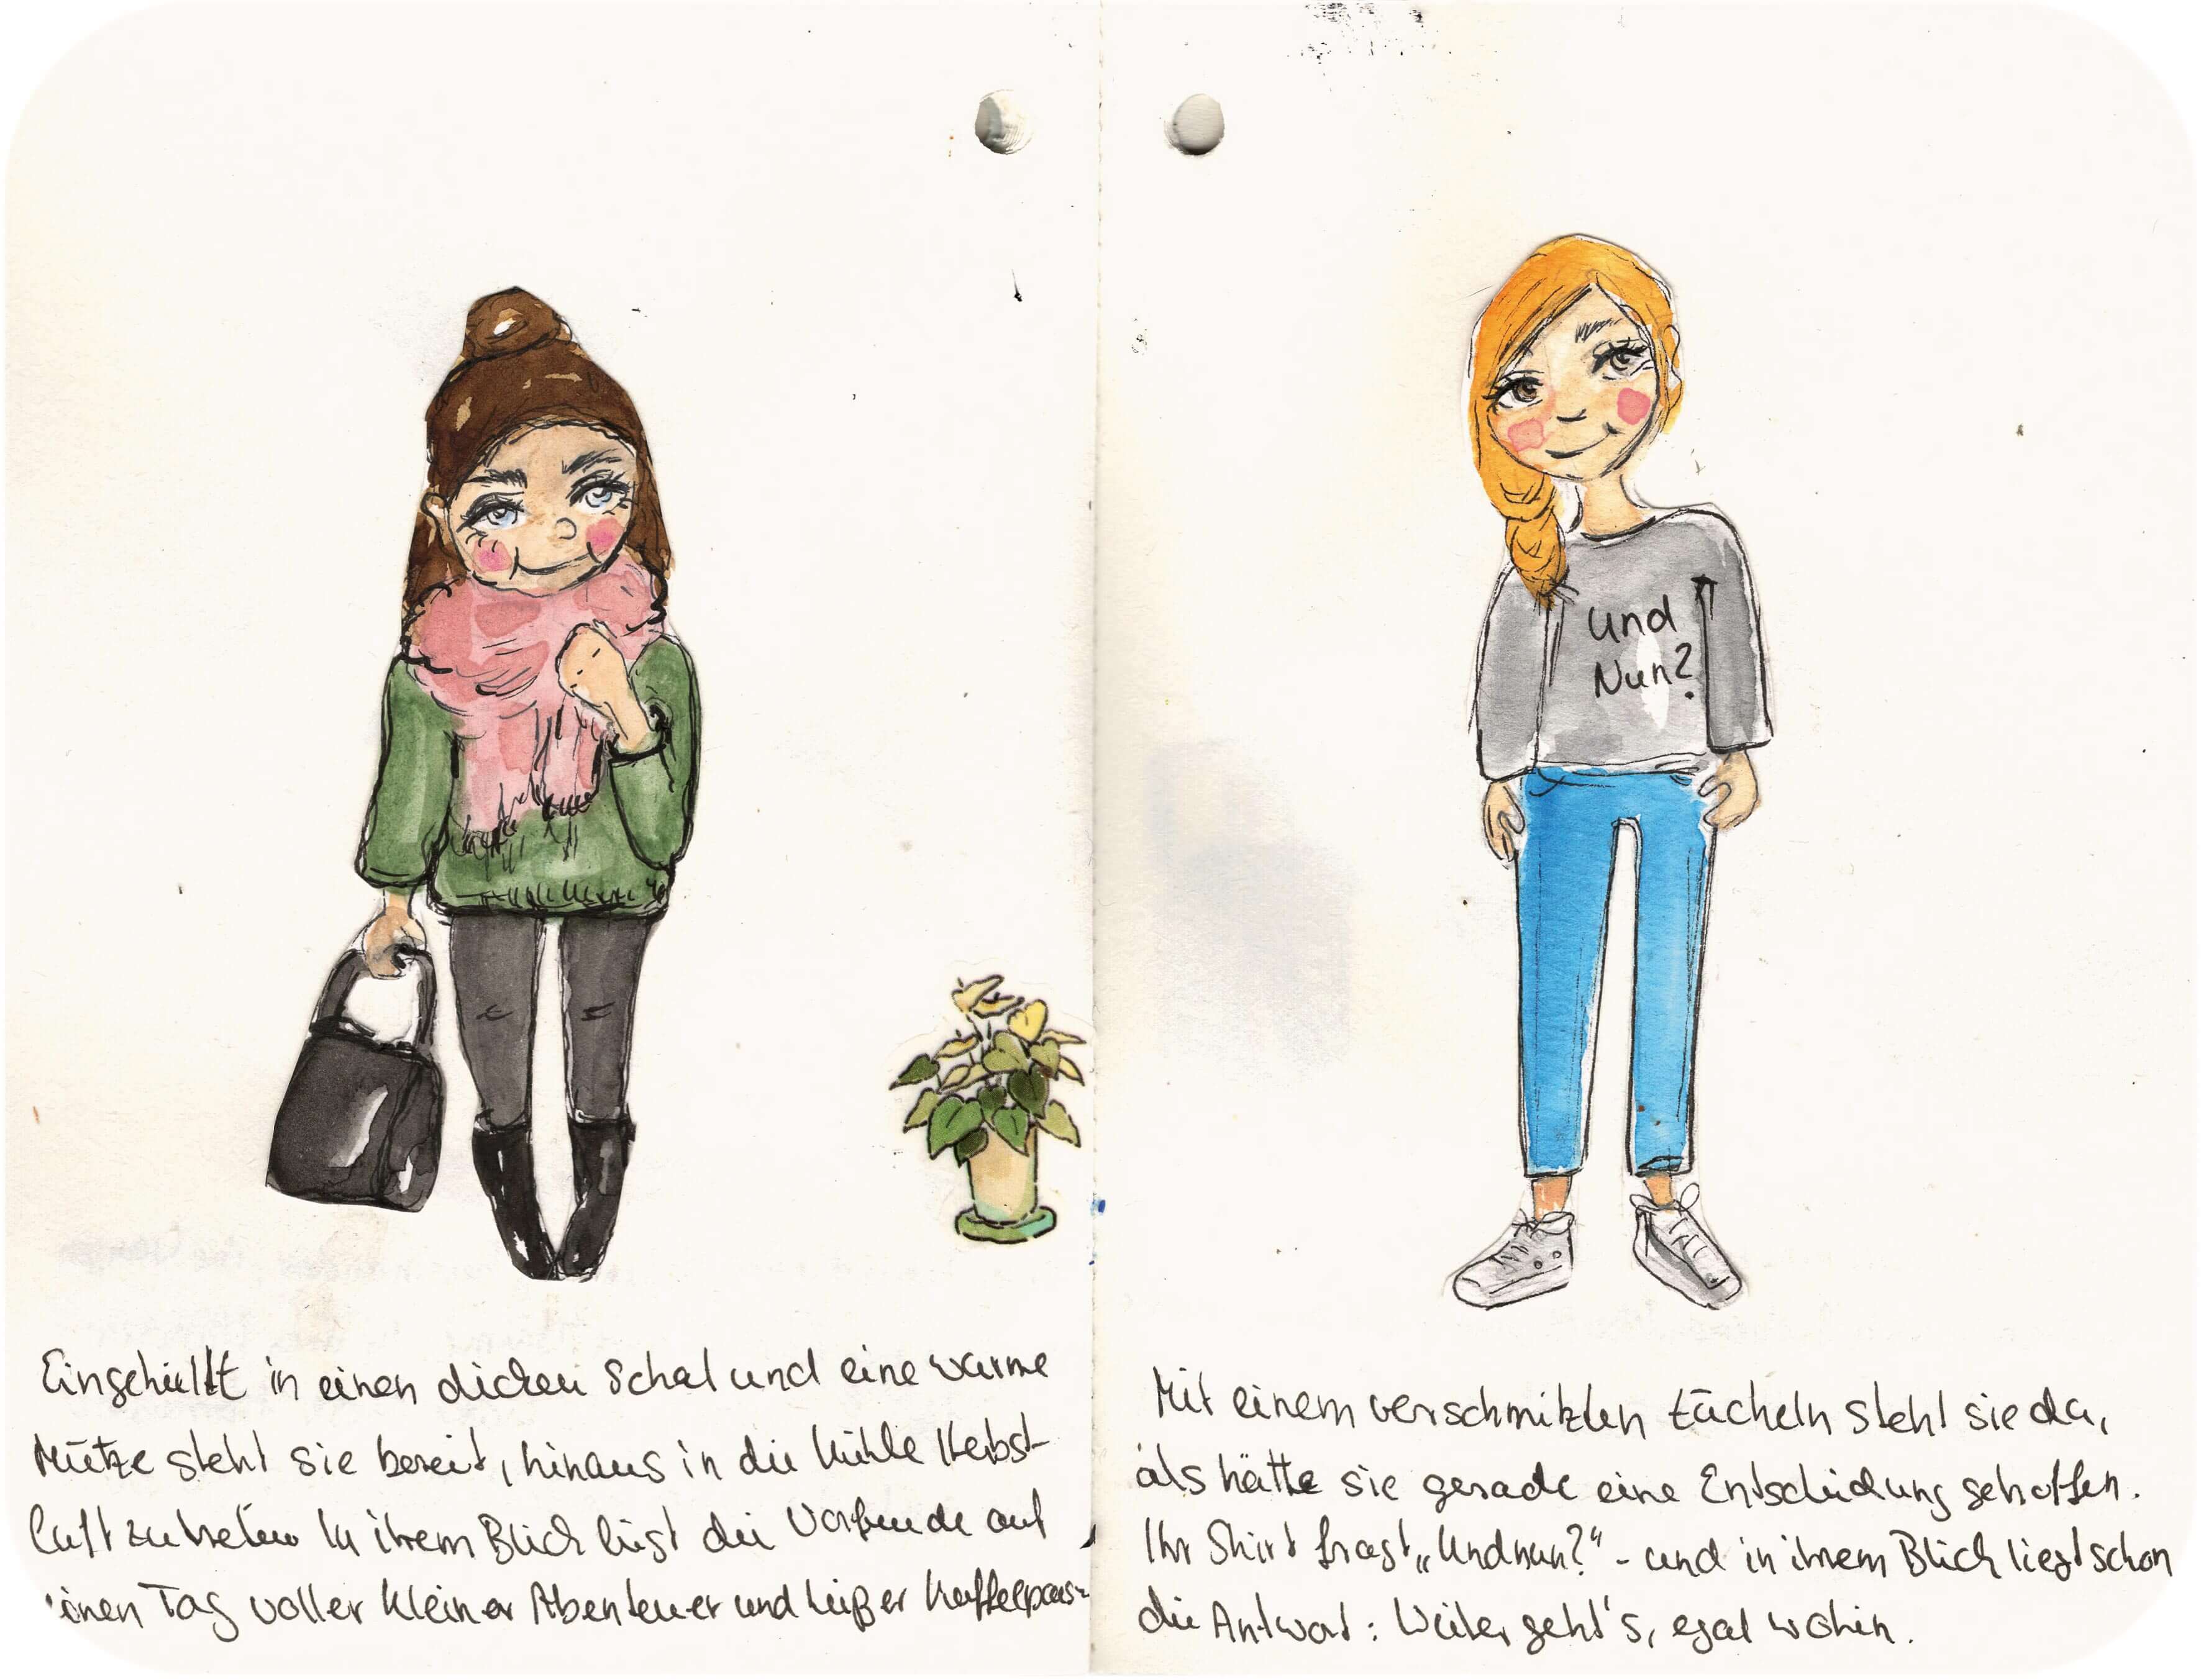 Und
Nun?
Eingehüllt in einen dicken Schal und eine warme
Mütze steht sie bereit, hinaus in die kühle Herbst-
luft zu treten. In ihrem Blick liegt die Vorfreude auf
einen Tag voller kleiner Abenteuer und heißer Kaffeepaus-
Mit einem verschmitzten Lächeln steht sie da,
als hätte sie gerade eine Entscheidung getroffen.
Ihr Shirt fragt „Und nun?“ - und in ihrem Blick liegt schon
die Antwort: Weiter geht's, egal wohin.